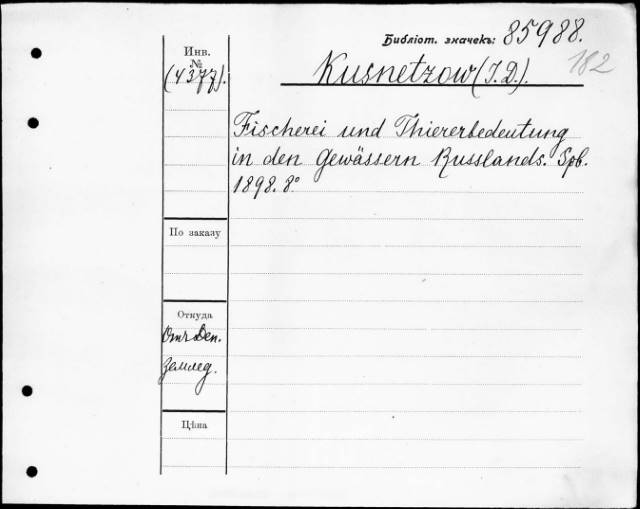 Библіот. значекъ: 85988.
182
Инв.
№
(4377).
Kusnetzow (I. D.).
Fischerei und Thiererbedeutung
in den Gewässern Russlands. Spb.
1898. 8°
По заказу
Откуда
Отъ Деп.
Землед.
Цѣна